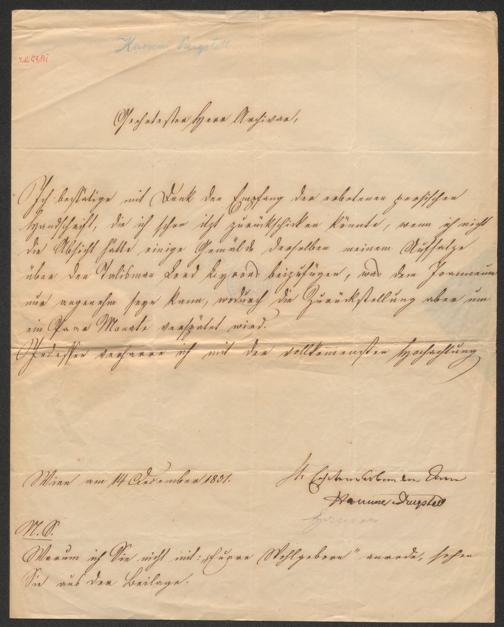 Hammer Purgstall
Geehrtester Herr Archivar,
Ich bestätige mit Dank den Empfang der erbetenen persischen
Handschrift, die ich schon itzt zurückschicken könnte, wenn ich nicht
die Absicht hätte einige Gemälde derselben meinem Aufsatze
über den Talisman Lord Byrons beizufügen, was dem
nur angenehm seyn kann, wodurch die Zurückstellung aber um
ein Paar Monate verspätet wird.
Indessen verharre ich mit der vollkommensten Hochachtung
Wien am 14 December 1851.
Hammer-Purgstall
N.S.
Warum ich Sie nicht mit: "Euere Wohlgeboren" anrede, sehen
Sie aus der Beilage.